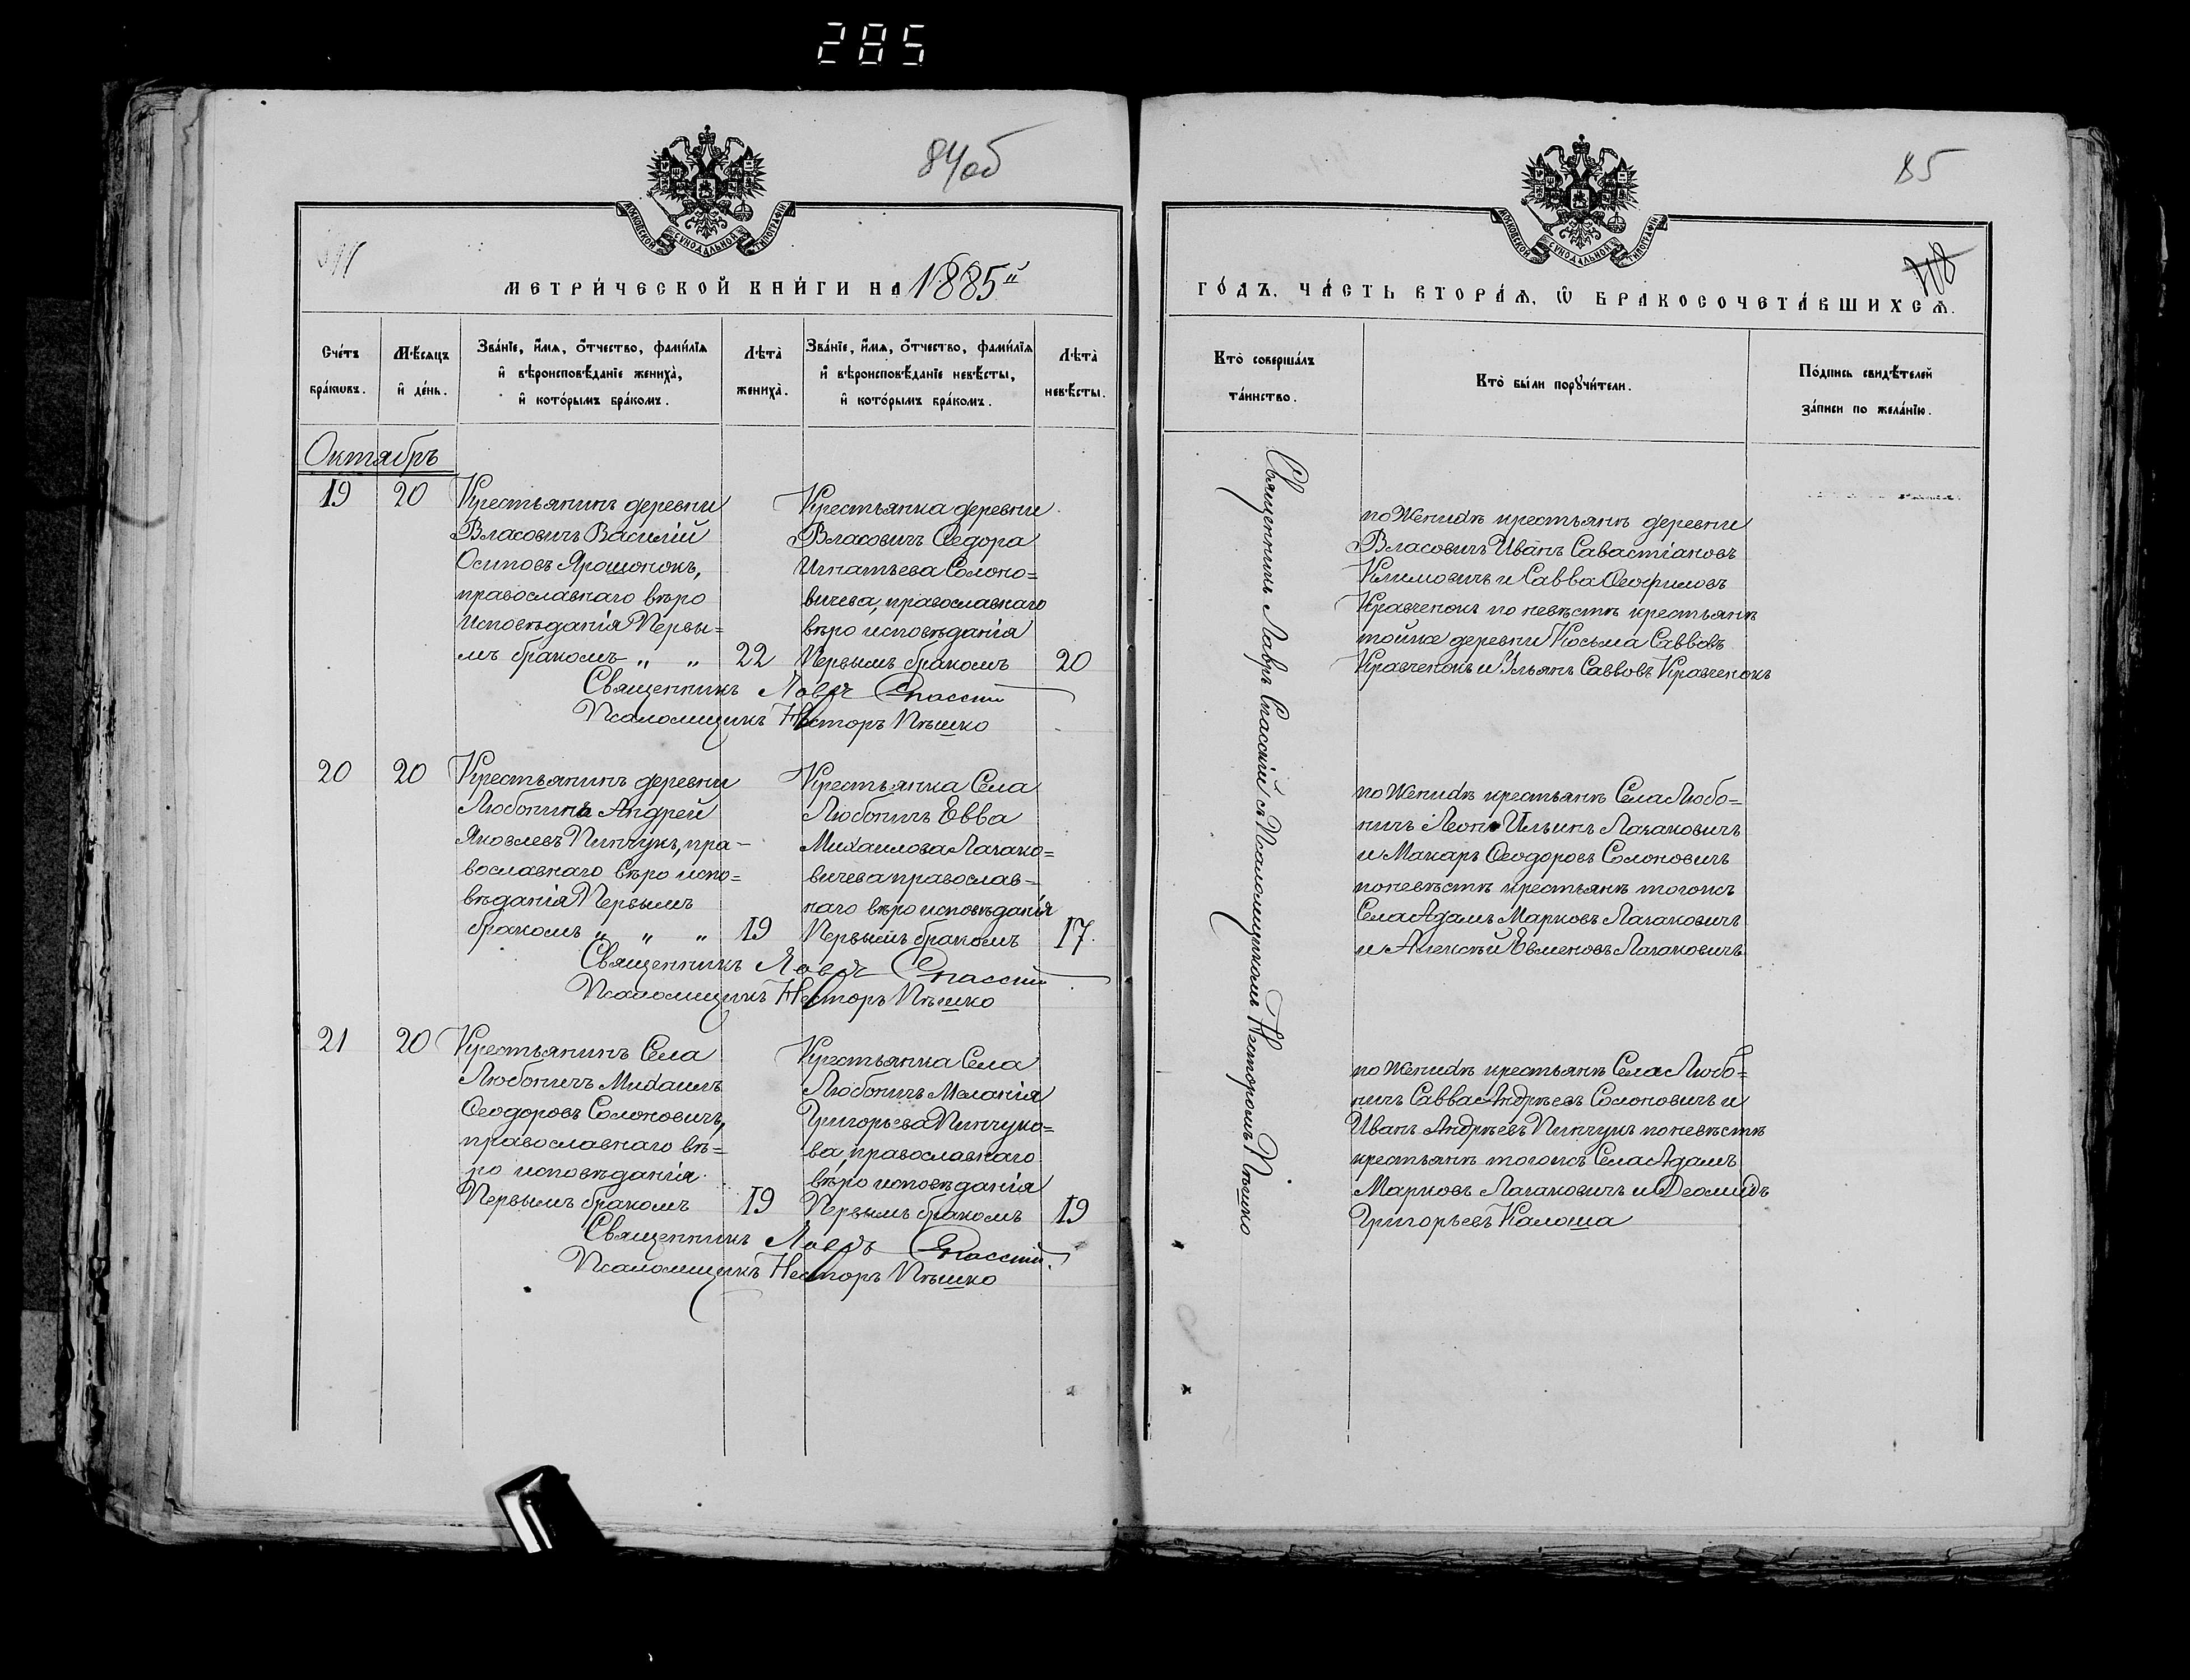 285
84об
МОСКОВСКОЙ СѴНОДАЛЬНОЙ ТИПОГРАФІИ
МЕТРИ́ЧЕСКОЙ КНИ́ГИ НА 1885й
Сче́тъ бра́кѡвъ.
Мѣ́сяцъ и҆ де́нь.
Зва́нїе, и҆́мѧ, ѻ҆́тчество, фами́лїѧ
и҆ вѣроисповѣ́данїе жениха̀,
и҆ кото́рымъ бра́комъ.
Лѣта̀ жениха̀.
Зва́нїе, и҆́мѧ, ѻ҆́тчество, фами́лїѧ
и҆ вѣроисповѣ́данїе невѣ́сты,
и҆ кото́рымъ бра́комъ.
Лѣта̀ невѣ́сты.
Октябръ
19
20
Крестьянинъ деревни
Власовичъ Василій
Осиповъ Ярошонокъ,
православнаго вѣро
исповѣданія Первы=
мъ бракомъ „ „
22
Крестьянка деревни
Власовичъ Ѳедора
Игнатьева Солоно=
вичева, православнаго
вѣро исповѣданія
Первымъ бракомъ
20
Священникъ Лавръ Спасскій
Псаломщикъ Несторъ Пѣшко
20
20
Крестьянинъ деревни
Любоничъ Андрей
Яковлевъ Пинчукъ, пра-
вославнаго вѣро испо=
вѣданія Первымъ
бракомъ „ „ „
19
Крестьянка Села
Любоничъ Евва
Михаилова Лагако=
вичева православ=
наго вѣро исповѣданія
Первымъ бракомъ
17.
Священникъ Лавръ Спасскій
Псаломщикъ Несторъ Пѣшко
21
20
Крестьянинъ Села
Любоничъ Михаилъ
Ѳеодоровъ Солоновичъ,
православнаго вѣ=
ро исповѣданія
Первымъ бракомъ
19
Крестьянка Села
Любоничъ Меланія
Григорьева Пинчуко=
ва, православнаго
вѣро исповѣданія
Первымъ бракомъ
19
Священникъ Лавръ Спасскій.
Псаломщикъ Несторъ Пѣшко
85
МОСКОВСКОЙ СѴНОДАЛЬНОЙ ТИПОГРАФІИ
ГО́ДЪ, ЧА́СТЬ ВТОРА́Ѧ, Ѡ҆ БРАКОСОЧЕТА́ВШИХСѦ.
Кто̀ соверша́лъ
та́инство.
Кто̀ бы́ли порꙋчи́тели.
По́дпись свидѣ́телей
за́писи по жела́нїю.
Священникъ Лавръ Спасскій съ Псаломщикомъ Несторомъ Пѣшко
по Женихѣ крестьянѣ деревни
Власовичъ Иванъ Савастіановъ
Климовичъ и Савва Ѳеофиловъ
Кравченокъ по невѣстѣ крестьянѣ
тойже деревни Косьма Саввовъ
Кравченокъ и Ульянъ Саввовъ Кравченокъ
по Женихѣ крестьянѣ Села Любо=
ничъ Леонъ Ильинъ Лагаковичъ
и Макаръ Ѳеодоровъ Солоновичъ
по невѣстѣ крестьянѣ тогожъ
Села Адамъ Марковъ Лагаковичъ
и Алексѣй Евменовъ Лагаковичъ
по Женихѣ крестьянѣ Села Любо=
ничъ Савва Андрѣевъ Солоновичъ и
Иванъ Андрѣевъ Пинчукъ по невѣстѣ
крестьянѣ тогожъ Села Адамъ
Марковъ Лагаковичъ и Деомидъ
Григорьевъ Калоша